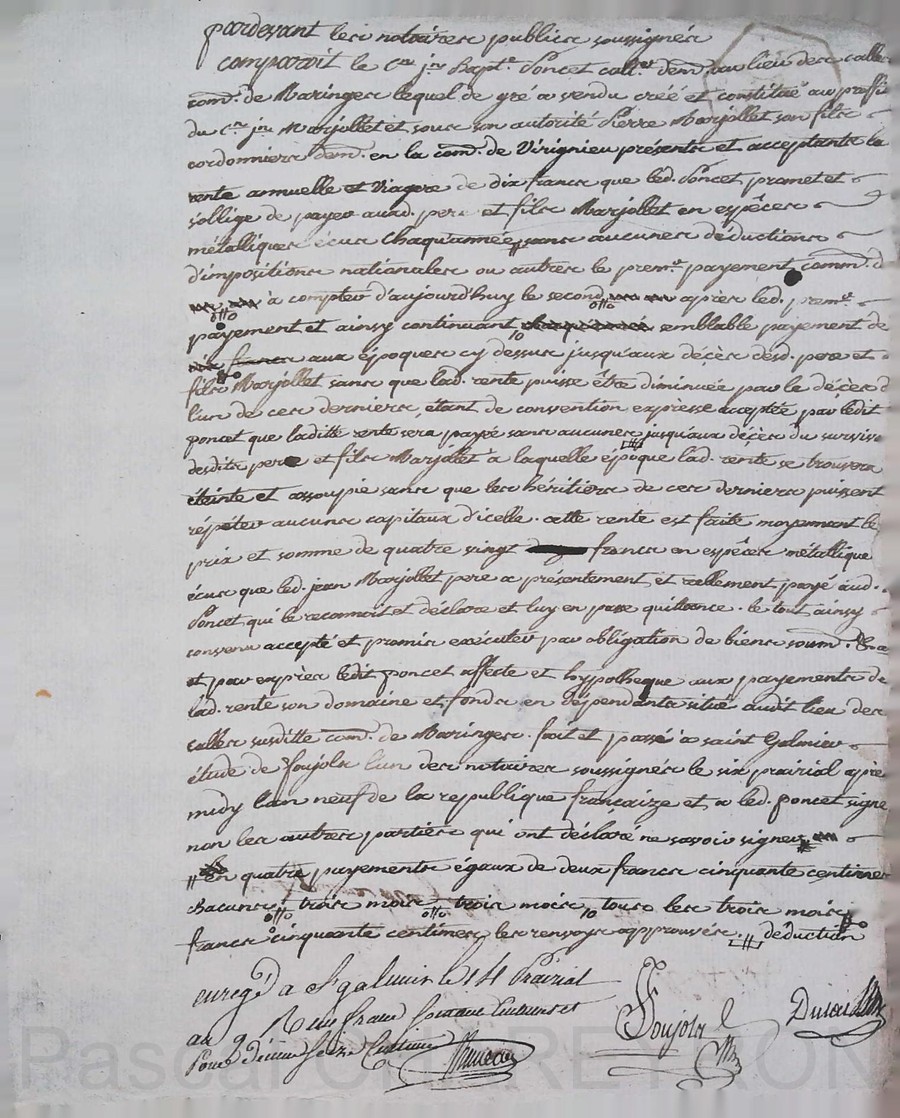 pardevant les notaires publics soussignés
comparoit le cen jn Bapte Poncet demt au lieu des salles
comne de Maringes lequel de gré a vendu créé et constitué au proffit
du cen jn Marjollet et sous son autorité Pierre Marjollet son fils
cordonniers demt en la comne de Virignieu présents et acceptants la
rente annuelle et viagere de dix francs que led. Poncet promet et
s'oblige de payer auxd. pere et fils Marjollet en espèces
métalliques écus chaqu'année sans aucunes déductions
d'impositions nationales ou autres le premer payement comm. d
à compter d'aujourd'huy le second après led. premer
payement et ainsy continuant semblable payement de
francs aux époques cy dessus jusqu'aux décès desd. pere et
fils Marjollet sans que lad. rente puisse être diminuée par le décès d
l'un de ces derniers, étant de convention expresse acceptée par ledit
poncet que laditte rente sera payée sans aucunes jusqu'aux décès du survivt
desdits pere et fils Marjollet à laquelle époque lad. rente se trouvera
éteinte et assoupie sans que les héritiers de ces derniers puissent
répéter aucuns capitaux d'icelle. cette rente est faite moyennant le
prix et somme de quatre vingt francs en espèces métallique
écus que led. jean Marjollet pere a présentement et réellement payé aud.
Poncet qui le reconnoit et déclare et luy en passe quittance. le tout ainsy
convenu accepté et promis exécuter par obligation de biens soum.
et par exprès ledit poncet affecte et hypotheque aux payements de
lad. rente son domaine et fonds en dépendants situé audit lieu des
salles susditte comne de Maringes. fait et passé à saint Galmier
étude de Foujols l'un des notaires soussignés le six prairial après
midy l'an neuf de la republique francaize et a led. poncet signé
non les autres parties qui ont déclaré ne savoir signer
// En quatre payements égaux de deux francs cinquante centimes
chacuns trois mois trois mois tous les trois mois
francs cinquante centimes les renvoys approuvés. déduction
enregé a St galmier le 14 Prairial
an 9 Reçu
Foujols